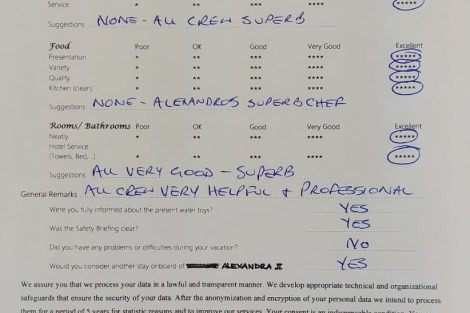 Service * ** *** **** *****
Suggestions NONE - ALL CREW SUPERB
Food Poor OK Good Very Good Excellent
Presentation * ** *** **** *****
Variety * ** *** **** *****
Quality * ** *** **** *****
Kitchen (clean) * ** *** **** *****
Suggestions NONE - ALEXANDROS SUPERB CHEF
Rooms/ Bathrooms Poor OK Good Very Good Excellent
Neatly * ** *** **** *****
Hotel Service
(Towels, Bed,..) * ** *** **** *****
Suggestions ALL VERY GOOD - SUPERB
General Remarks ALL CREW VERY HELPFUL + PROFESSIONAL
Were you fully informed about the present water toys? YES
Was the Safety Briefing clear? YES
Did you have any problems or difficulties during your vacation? NO
Would you consider another stay onboard of ALEXANDRA II YES
We assure you that we process your data in a lawful and transparent manner. We develop appropriate technical and organizational
safeguards that ensure the security of your data. After the anonymization and encryption of your personal data we intend to process
them for a period of 5 years for statistic reasons and to improve our services. Your consent is an indispensable condition.